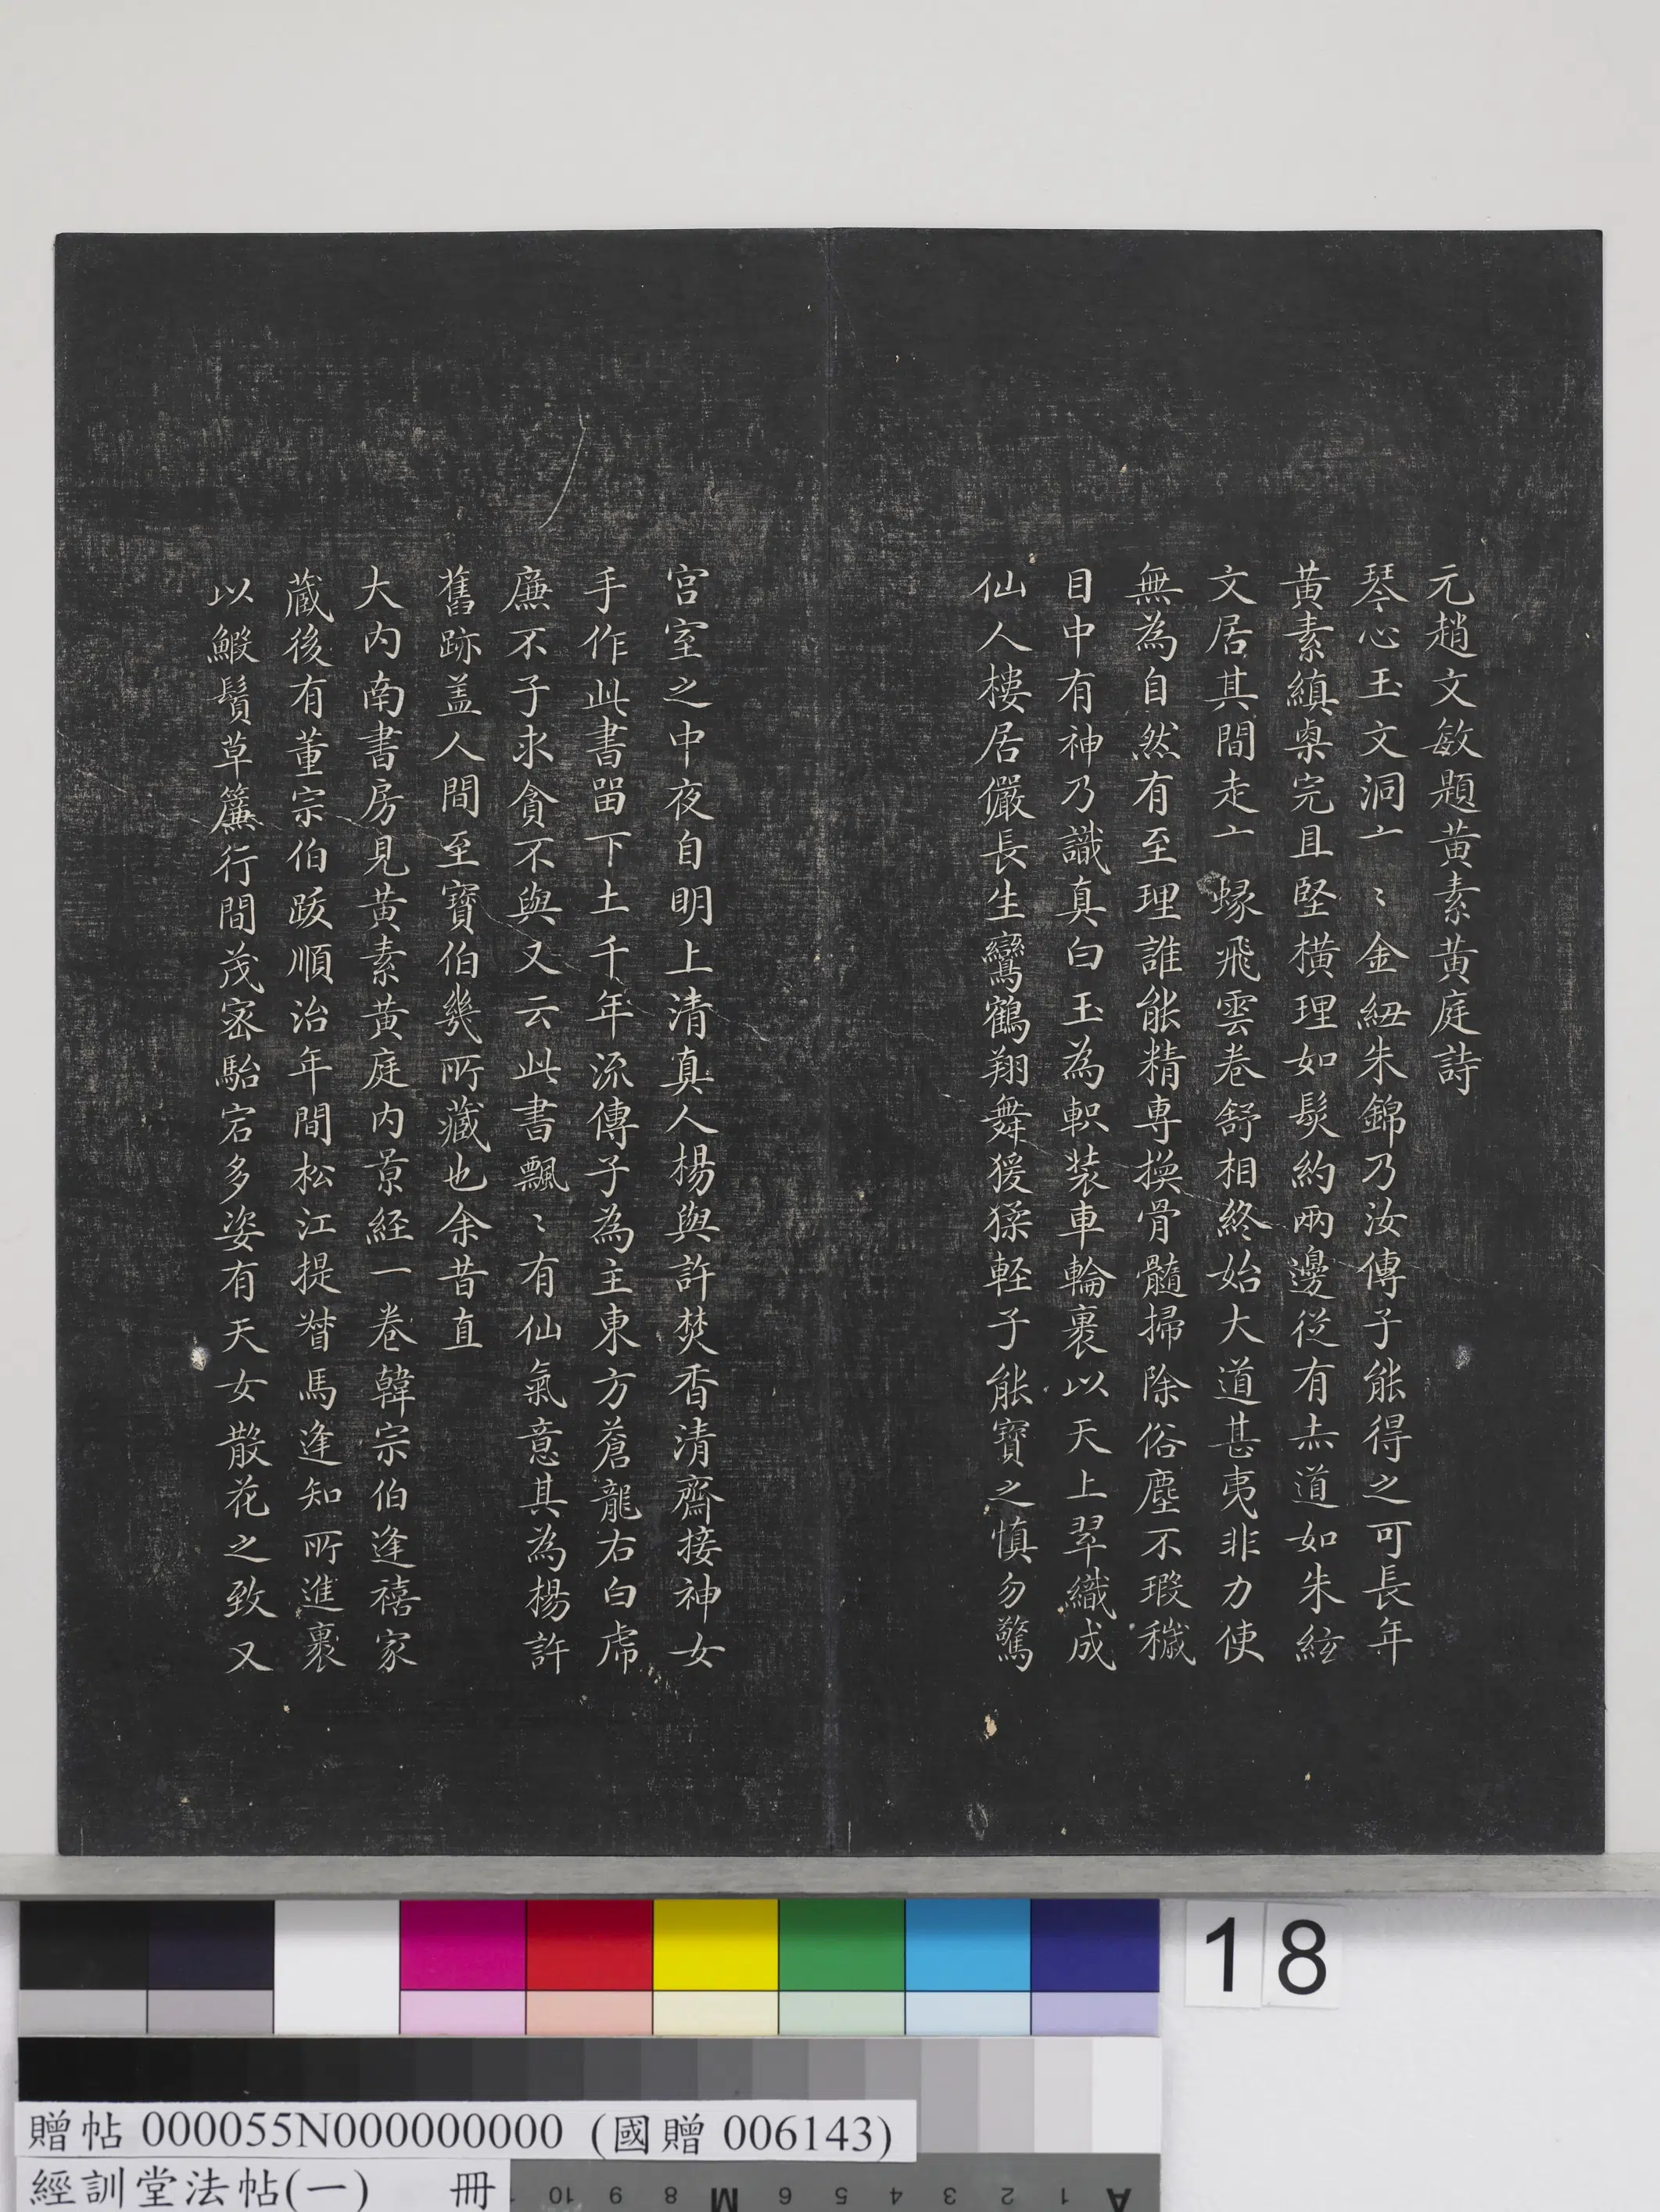 元趙文敏題黃素黃庭詩
琴心玉文洞亠〻金紐朱錦乃汝傳子能得之可長年
黃素縝㮚完且堅橫理如髮約兩邊從有赤道如朱絃
文居其間走亠蜾飛雲卷舒相終始大道甚夷非力使
無為自然有至理誰能精専換骨髓掃除俗塵不瑕穢
目中有神乃識真白玉為軹装車輪裹以天上翠織成
仙人樓居儼長生鸞鶴翔舞猨猱軽子能寶之慎勿驚
宮室之中夜自明上清真人楊與許焚香清齋接神女
手作此書畱下土千年流傳子為主東方蒼龍右白虎
廉不子求貪不與又云此書飄〻有仙氣意其為楊許
舊跡盖人間至寶伯幾所藏也余昔直
大内南書房見黃素黃庭内景経一卷韓宗伯逢禧家
蔵後有董宗伯跋順治年間松江提督馬逢知所進裹
以鰕鬚草簾行間茂密駘宕多姿有天女散花之致又
18
贈帖 000055N000000000 (國贈 006143)
經訓堂法帖(一) 冊
10 9 8 M 6 5 4 3 2 1 A